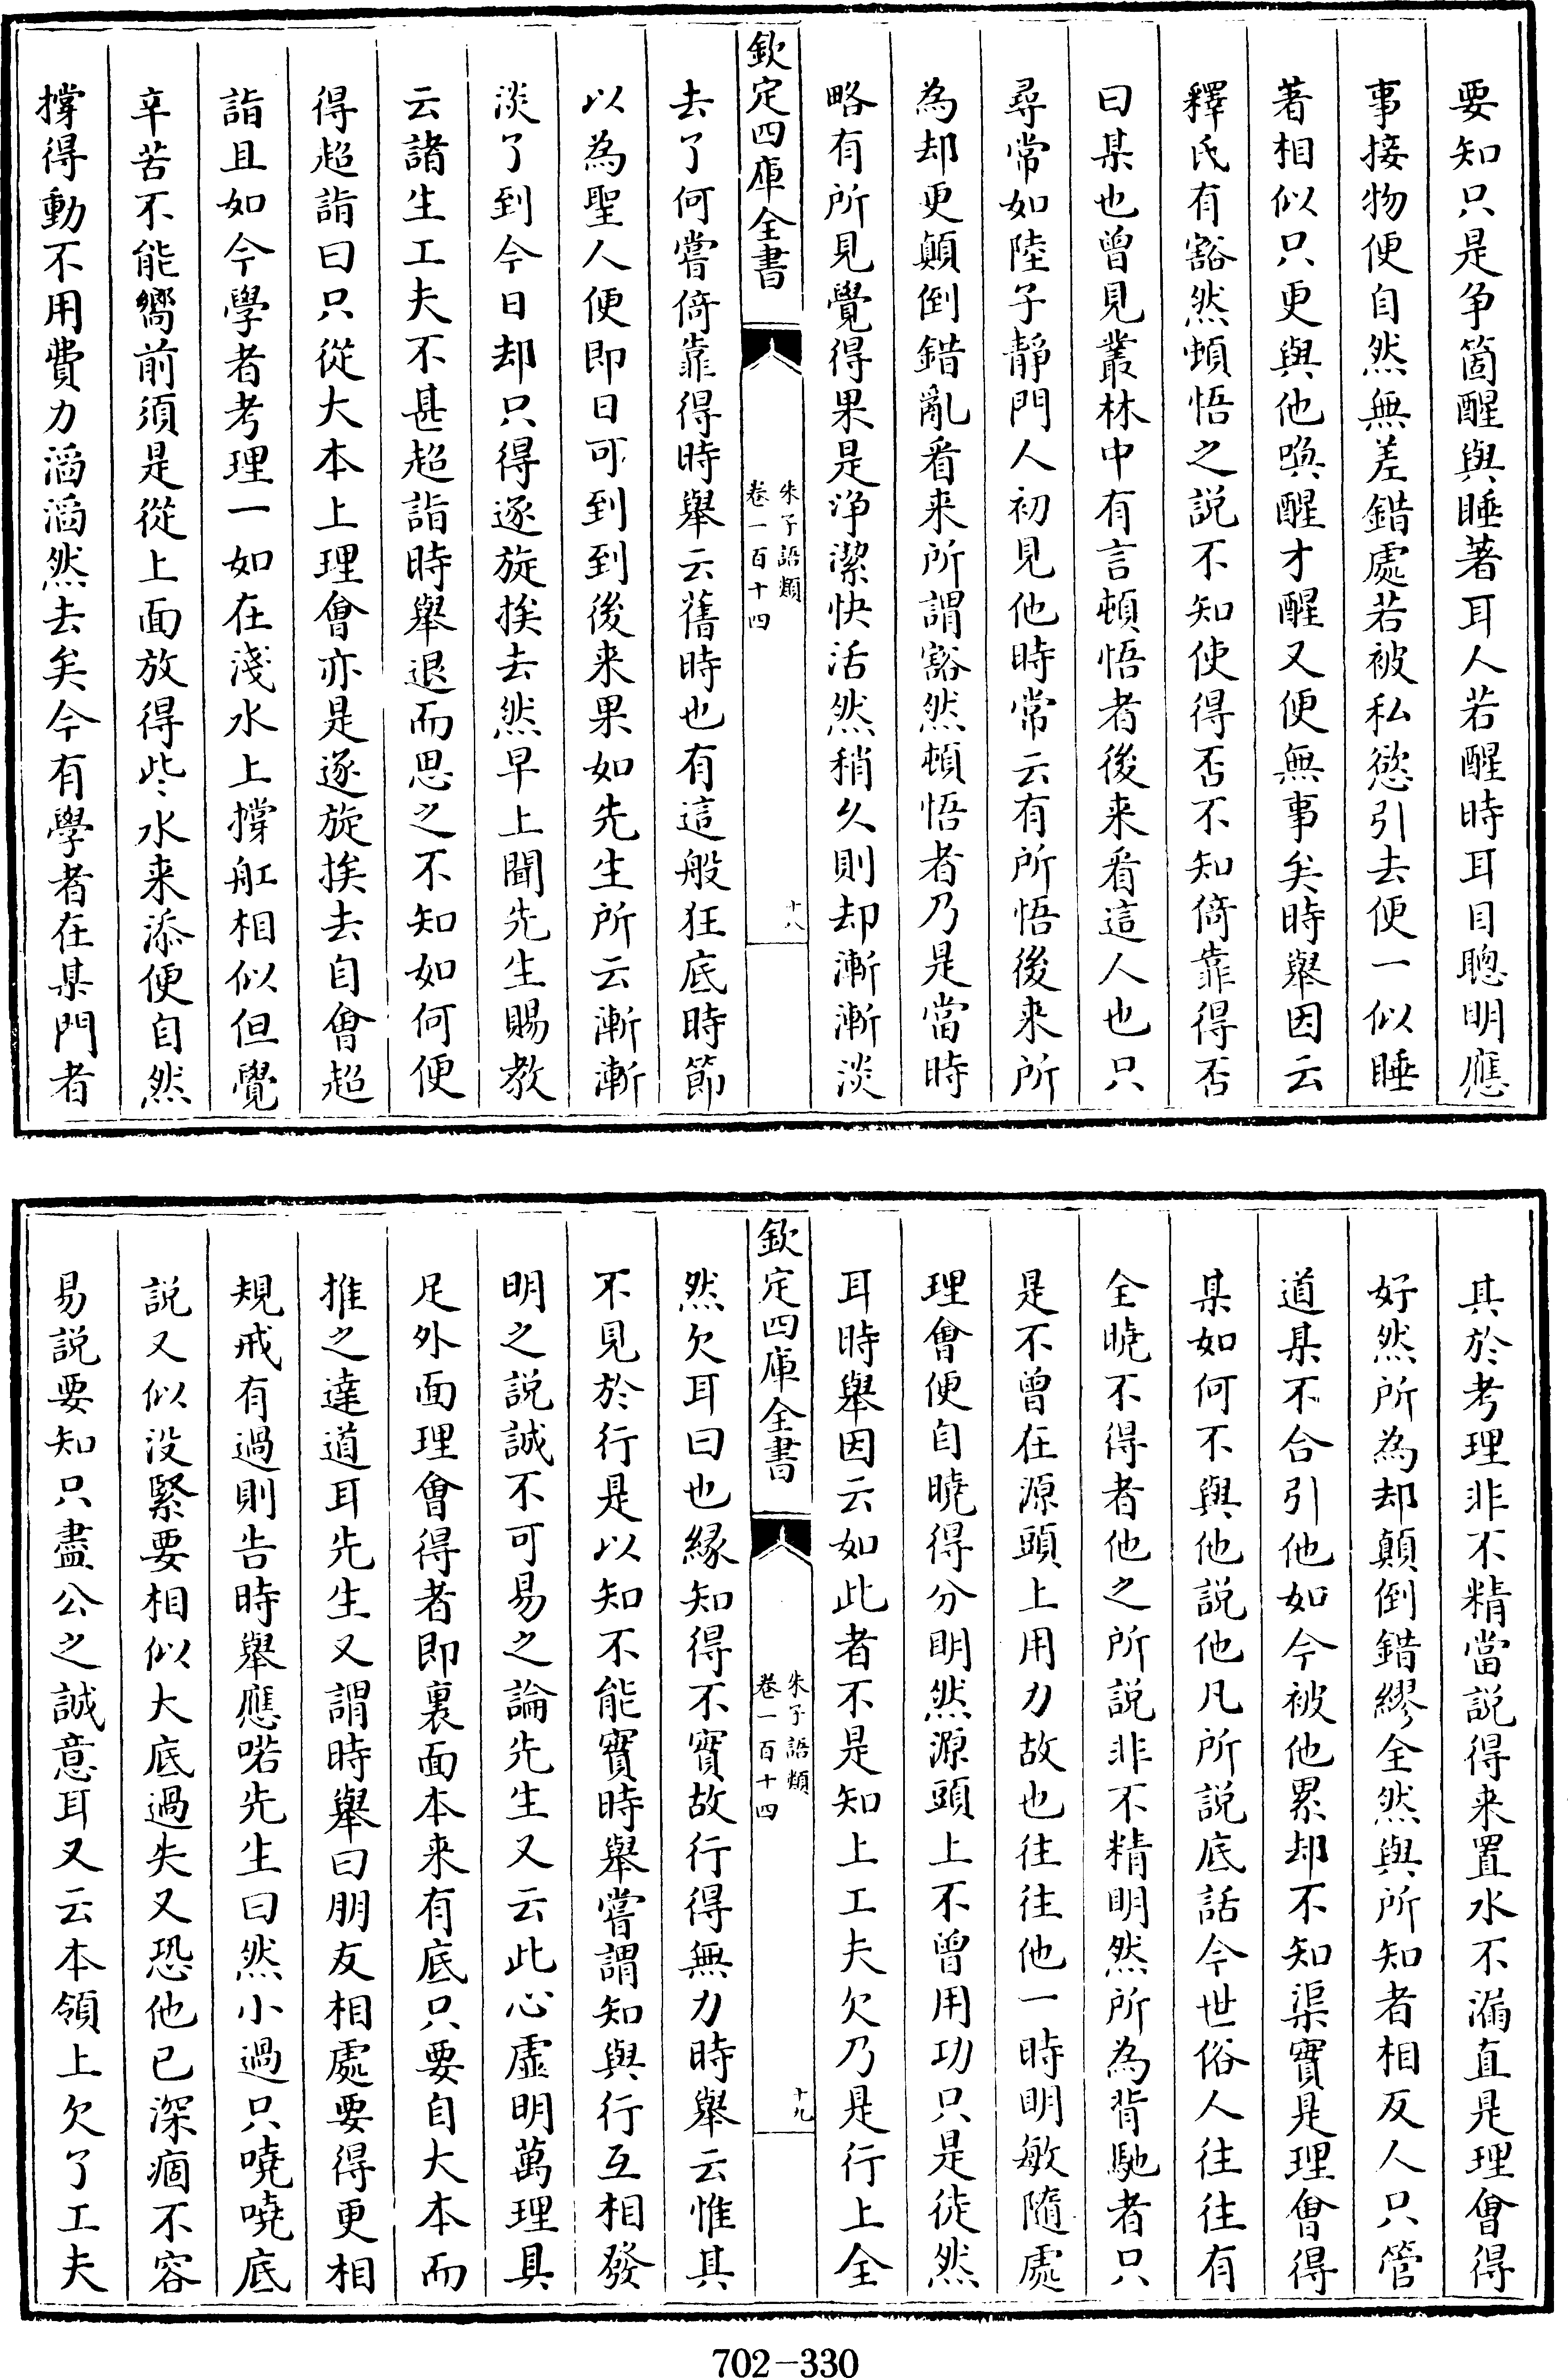 要知只是争箇醒與睡著耳人若醒時耳目聰明應
事接物便自然無差錯處若被私慾引去便一似睡
著相似只更與他喚醒才醒又便無事矣時舉因云
釋氏有豁然頓悟之説不知使得否不知倚靠得否
曰某也曾見叢林中有言頓悟者後来看這人也只
尋常如陸子靜門人初見他時常云有所悟後来所
為却更顛倒錯亂看来所謂豁然頓悟者乃是當時
略有所見覺得果是浄潔快活然稍久則却漸漸淡
欽定四庫全書
朱子語類
卷一百十四
十八
去了何嘗倚靠得時舉云舊時也有這般狂底時節
以為聖人便即日可到到後来果如先生所云漸漸
淡了到今日却只得逐旋挨去然早上聞先生賜教
云諸生工夫不甚超詣時舉退而思之不知如何便
得超詣曰只從大本上理會亦是逐旋挨去自會超
詣且如今學者考理一如在淺水上撐舡相似但覺
辛苦不能嚮前須是從上面放得些水来添便自然
撐得動不用費力滔滔然去矣今有學者在某門者
其於考理非不精當説得来置水不漏直是理會得
好然所為却顛倒錯繆全然與所知者相反人只管
道某不合引他如今被他累却不知渠實是理會得
某如何不與他説他凡所説底話今世俗人往往有
全曉不得者他之所説非不精明然所為背馳者只
是不曾在源頭上用力故也往往他一時明敏隨處
理會便自曉得分明然源頭上不曾用功只是徒然
耳時舉因云如此者不是知上工夫欠乃是行上全
欽定四庫全書
朱子語類
卷一百十四
十九
然欠耳曰也緣知得不實故行得無力時舉云惟其
不見於行是以知不能實時舉嘗謂知與行互相發
明之説誠不可易之論先生又云此心虚明萬理具
足外面理會得者即裏面本来有底只要自大本而
推之達道耳先生又謂時舉曰朋友相處要得更相
規戒有過則告時舉應喏先生曰然小過只嘵嘵底
説又似没緊要相似大底過失又恐他已深痼不容
易説要知只盡公之誠意耳又云本領上欠了工夫
702-330